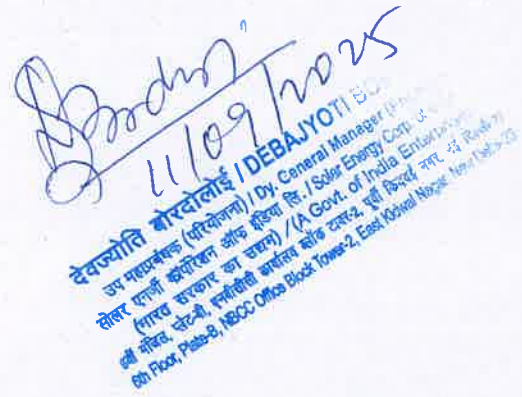 11/09/2025
देवज्योति बोरदोलोई / DEBAJYOTI BO
उप महाप्रबंधक (परियोजना) / Dy. General Manager
सोलर एनर्जी कॉर्पोरेशन ऑफ इंडिया लि. / Solar Energy Corp. of
(भारत सरकार का उद्यम) / (A Govt. of India Enterprise)
6वीं मंजिल, प्लेट-बी, एनबीसीसी कार्यालय ब्लॉक टावर-2, पूर्वी किदवई नगर, नई दिल्ली-23
6th Floor, Plate-B, NBCC Office Block Tower-2, East Kidwai Nagar, New Delhi-23